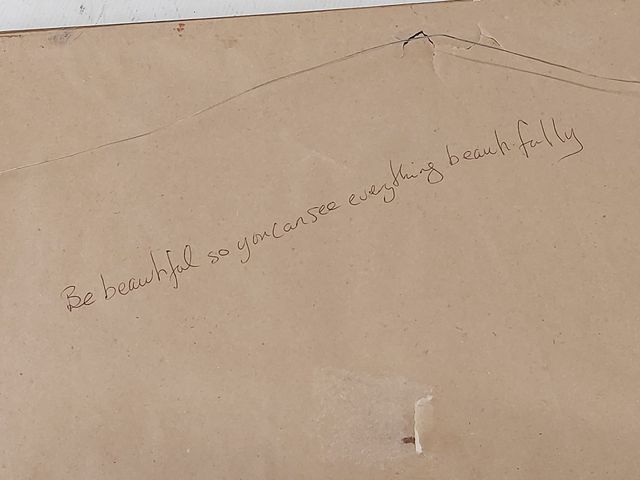 Be beautiful so you can see everything beautifully